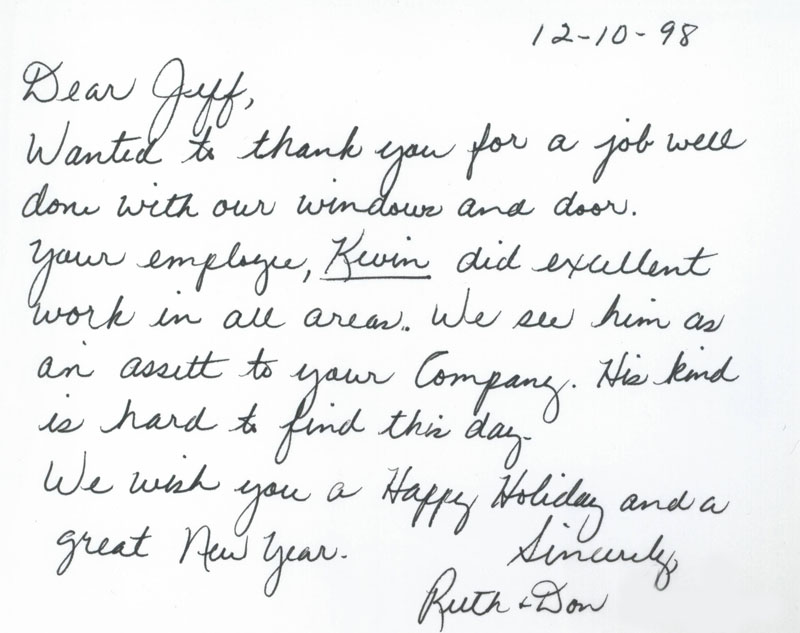 12-10-98
Dear Jeff,
Wanted to thank you for a job well
done with our windows and door.
Your employee, Kevin did excellent
work in all areas. We see him as
an assett to your Company. His kind
is hard to find this day.
We wish you a Happy Holiday and a
great New Year.
Sincerely,
Ruth + Don